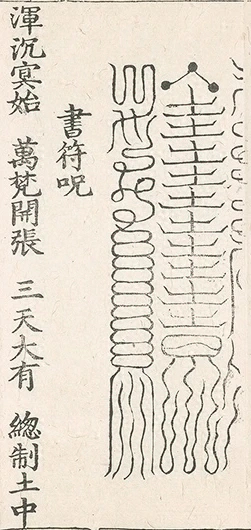 書符呪
渾沉㝠始 萬梵開張 三天大有 總制土中